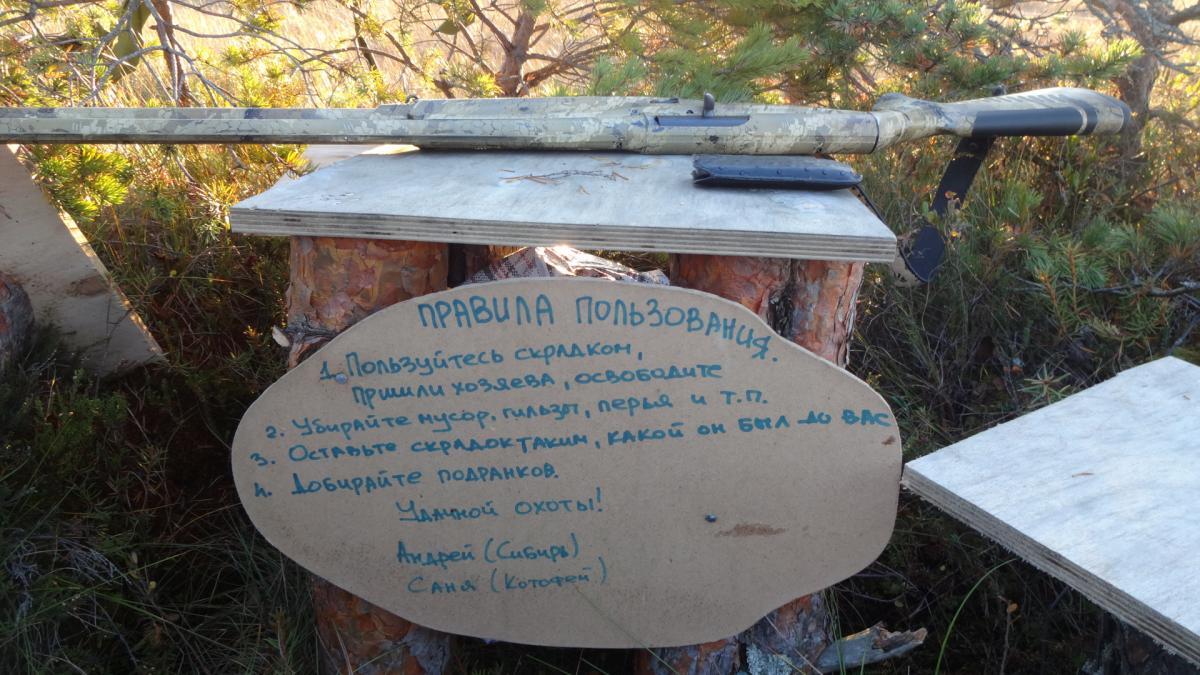 ПРАВИЛА ПОЛЬЗОВАНИЯ.
1. Пользуйтесь скрадком,
пришли хозяева, освободите
2. Убирайте мусор, гильзы, перья и т.п.
3. Оставьте скрадок таким, какой он был до вас
4. Добирайте подранков.
Удачной охоты!
Андрей (Сибирь)
Саня (Котофей)